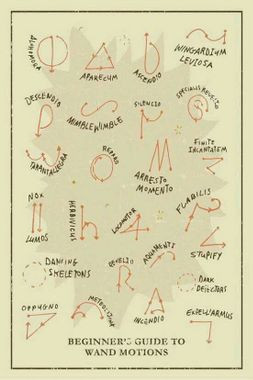 ALOHOMORA
APARECIUM
ASCENDIO
WINGARDIUM
LEVIOSA
DESCENDIO
MIMBLEWIMBLE
SILENCIO
SPECIALIS REVELIO
TARANTALLEGRA
REPARO
ARRESTO
MOMENTO
FINITE
INCANTATEM
NOX
LUMOS
HERBIVICUS
LOCOMOTOR
FLABILIS
STUPIFY
DANCING
SKELETONS
REVELIO
AQUAMENTI
DARK
DETECTORS
OPPUGNO
METEOLOJINX
INCENDIO
EXPELLIARMUS
BEGINNER'S GUIDE TO
WAND MOTIONS